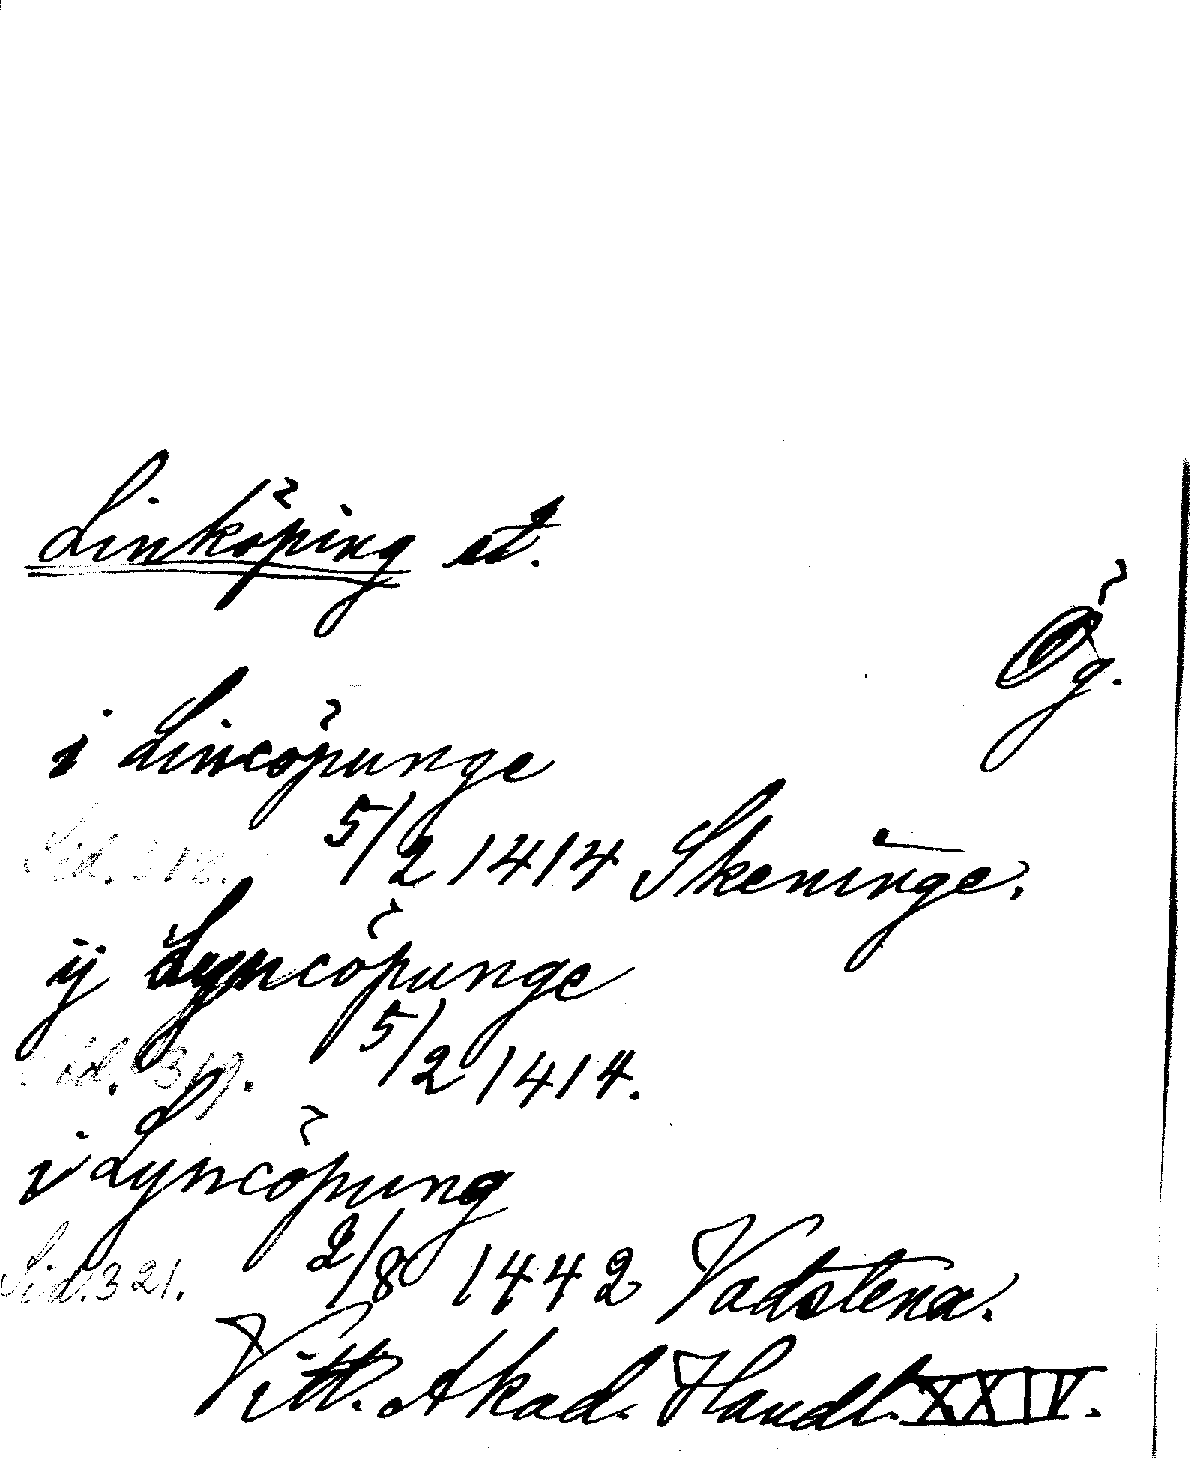 Linköping st.
Ög.
i Lincöpunge
Sid. 5/2 1414 Skeninge.
ij Lyncöpunge
Sid. 319. 5/2 1414.
i Lyncöpung
Sid. 321. 2/8 1442 Vadstena.
Vitt. Akad. Handl. XXIV.